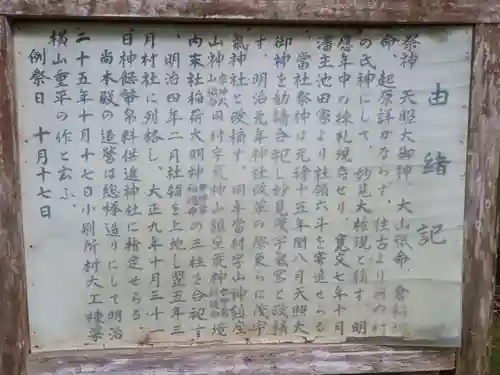 由緒記
祭神 天照大御神、大山祇命、倉稲魂
命、起原詳かならず、往古より河の村
の氏神にして、妙見大権現と称す 明
應年中の棟札現存せり、寛文七年十月
藩主池田家より社領六斗を寄進せらる
当社祭神は元禄十五年閏八月天照大
御神を勧請合祀し妙見宮字氣宮と改稱
す、明治元年神社改革の際更らに宇
氣神社と改稱す、同年当村字山神鎮座
山神社 同村字荒神山鎮座荒神社 境
内末社稲荷大明神 の三柱を合祀す
、明治四年二月社領を上地し翌五年三
月村社に列格し、大正九年十月三十一
日神饌幣帛料供進神社に指定せらる
尚本殿の造営は総欅造りにして明治
二十五年十月十七日小別所村大工棟梁
横山重平の作と云ふ、
例祭日 十月十七日